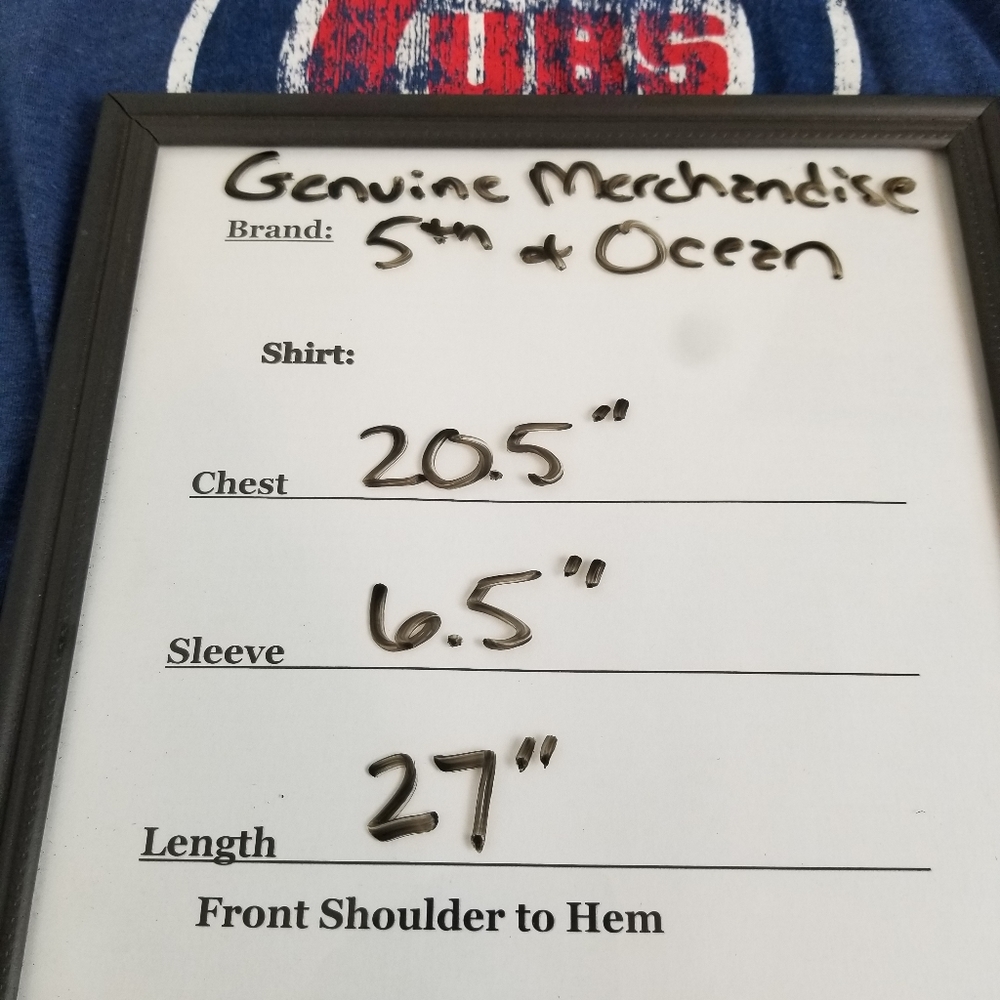 UBS
Genuine Merchandise
Brand: 5th & Ocean
Shirt:
Chest 20.5"
Sleeve 6.5"
Length 27"
Front Shoulder to Hem